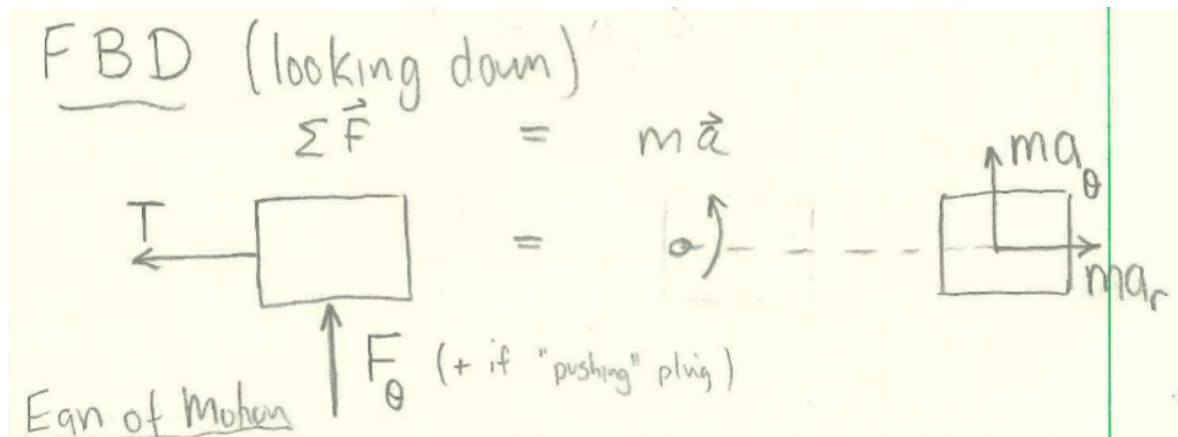 FBD (looking down)
ΣF⃗ = ma⃗
T = ma_θ
ma_r
F_θ (+ if "pushing" plug)
Eqn of Motion